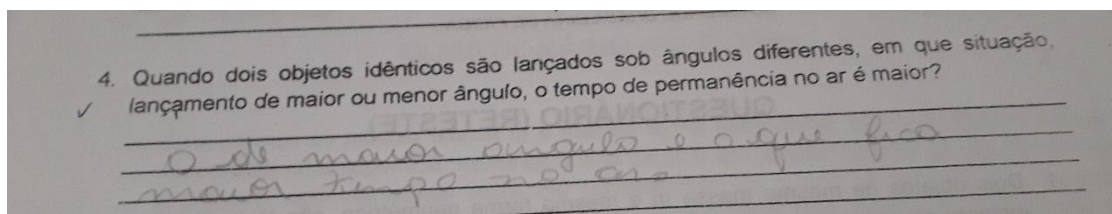 4. Quando dois objetos idênticos são lançados sob ângulos diferentes, em que situação,
lançamento de maior ou menor ângulo, o tempo de permanência no ar é maior?
QUESTIONÁRIO (RETESTE)
O de maior angulo e o que fica
maior tempo no ar.